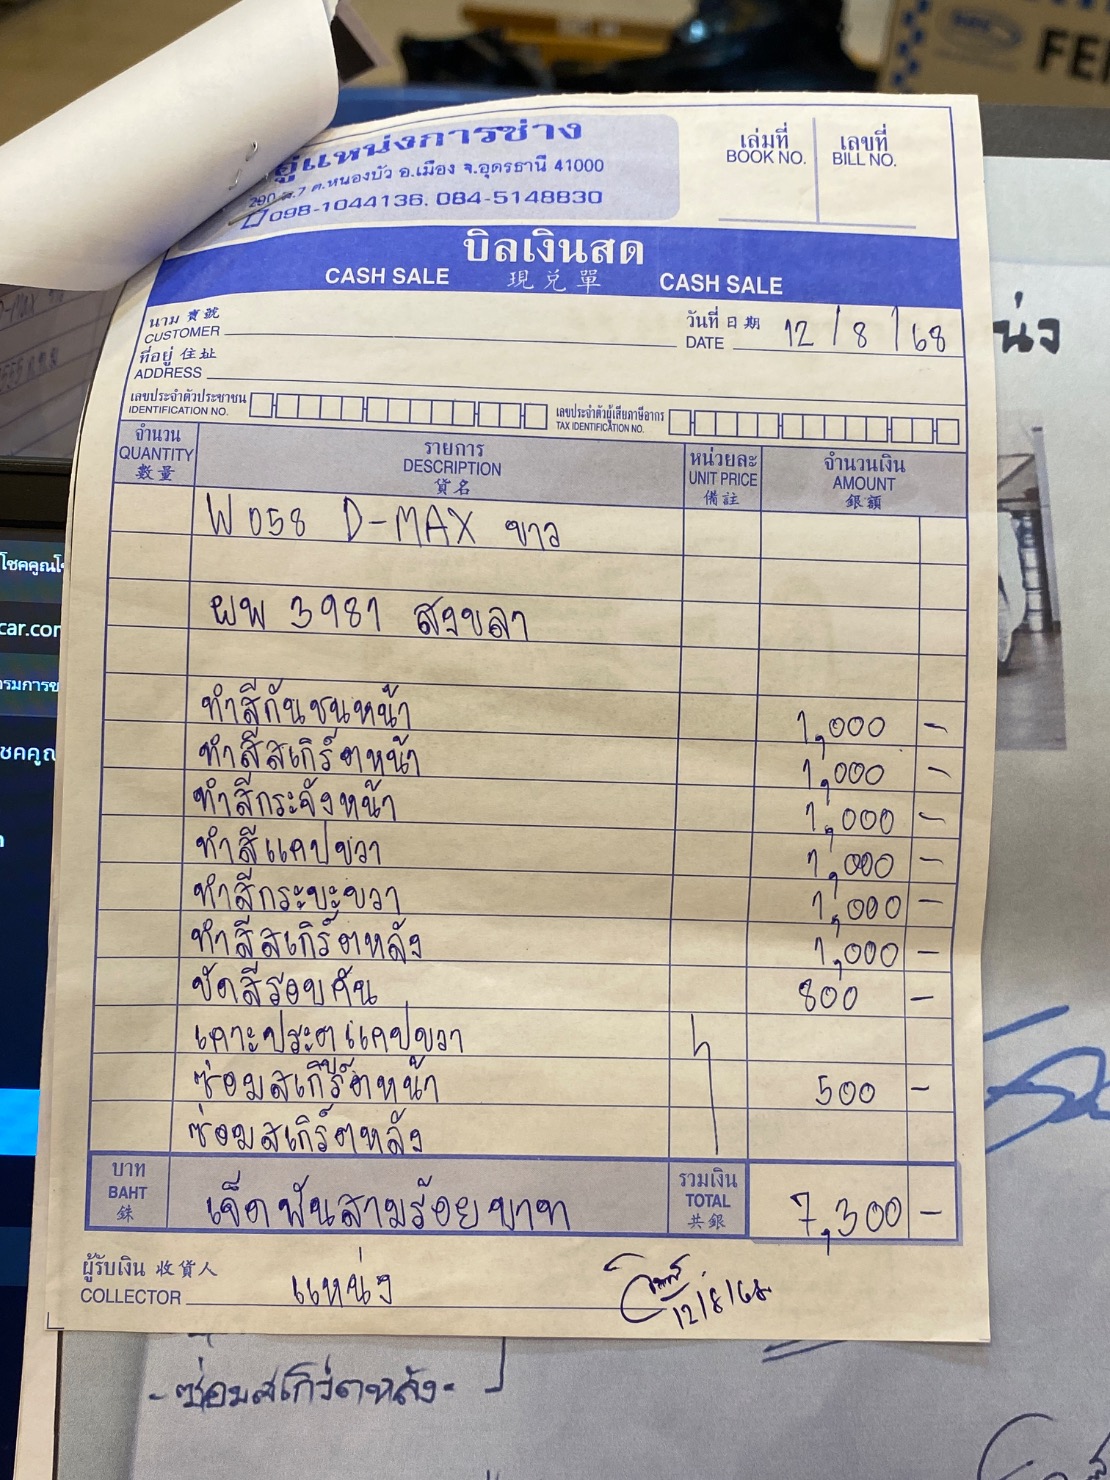 อู่แหน่งการช่าง
290 ม.7 ต.หนองบัว อ.เมือง จ.อุดรธานี 41000
098-1044136. 084-5148830
เล่มที่ เลขที่
BOOK NO. BILL NO.
บิลเงินสด
CASH SALE 現兌單 CASH SALE
นาม 寶號
CUSTOMER
วันที่ 日期
DATE 12/8/68
ที่อยู่ 住址
ADDRESS
เลขประจำตัวประชาชน
IDENTIFICATION NO.
เลขประจำตัวผู้เสียภาษีอากร
TAX IDENTIFICATION NO.
จำนวน รายการ หน่วยละ จำนวนเงิน
QUANTITY DESCRIPTION UNIT PRICE AMOUNT
數量 貨名 備註 銀額
W058 D-MAX ขาว
ผพ 3981 สงขลา
ทำสีกันชนหน้า 1,000 -
ทำสีสเกิร์ตหน้า 1,000 -
ทำสีกระจังหน้า 1,000 -
ทำสีแคปขวา 1,000 -
ทำสีกระบะขวา 1,000 -
ทำสีสเกิร์ตหลัง 1,000 -
ขัดสีรอบคัน 800 -
เคาะประตูแคปขวา
ซ่อมสเกิร์ตหน้า 500 -
ซ่อมสเกิร์ตหลัง
บาท
BAHT
銖
เจ็ดพันสามร้อยบาท
รวมเงิน
TOTAL
共銀
7,300 -
ผู้รับเงิน 收貨人
COLLECTOR แหน่ง
12/8/68
- ซ่อมสเกิร์ตหลัง -
FE
โชคคูณโ
car.com
รมการข
ชคคูณ
น่ง